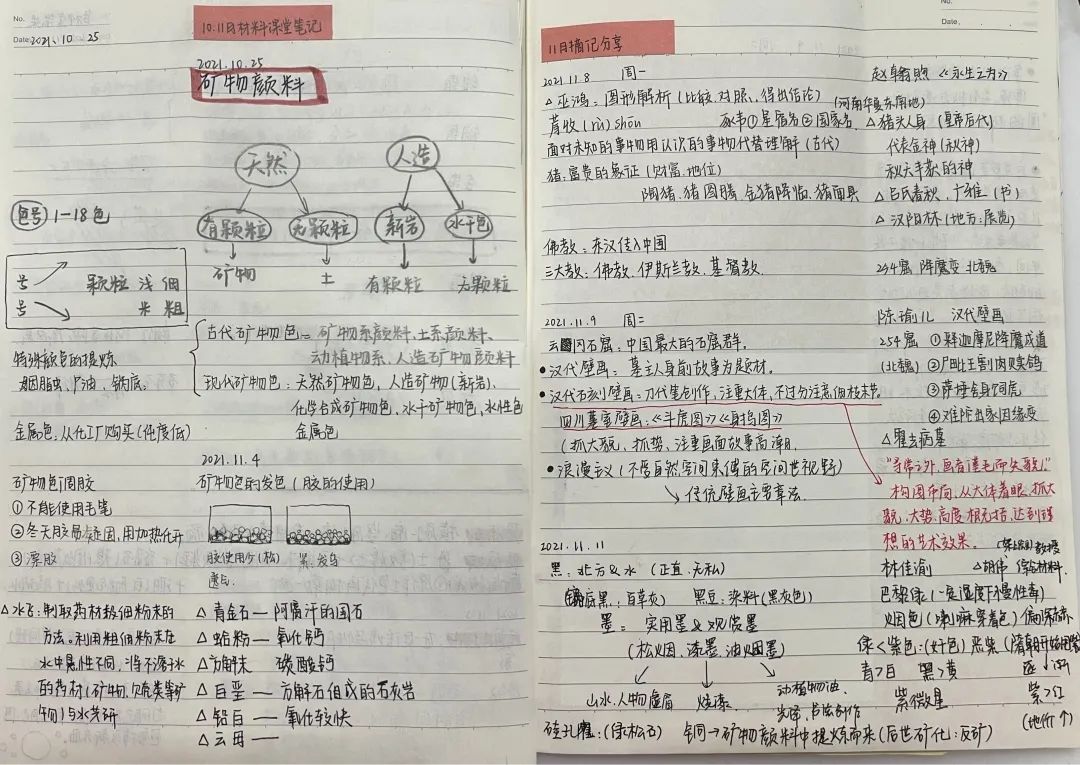 No.
Date: 2021. 10 25
10.11日材料课堂笔记
2021.10.25
矿物颜料
天然 人造
有颗粒 无颗粒 新岩 水干色
矿物 土 有颗粒 无颗粒
色号 1-18色
号 颗粒 浅 细
号 米 粗
特殊颜色的提炼
胭脂虫、户油、锅底、
金属色,从化工厂购买(纯度低)
古代矿物色=矿物系颜料、土系颜料、
动植物系、人造矿物质颜料
现代矿物色:天然矿物色,人造矿物(新岩)、
化学合成矿物色,水干矿物色,水性色
金属色
2021.11.4
矿物色固胶
①不能使用毛笔
②冬天胶易凝固,用加热化开
③漂胶
矿物色的发色(胶的使用)
胶使用少(松) 累.发乌
透气
△水飞:制取药材极细粉末的
方法。利用粗细粉末在
水中悬性不同,将不溶于水
的药材(矿物、贝壳类等矿
物)与水共研
△青金石—阿富汗的国石
△蛤粉—氧化钙
△方解末 碳酸钙
△白垩—方解石组成的石灰岩
△铅白—氧化较快
△云母—
No.
Date.
11日摘记分享
2021.11.8 周一
△巫鸿:图形解析(比较.对照、得出结论)
蓐收(rù)shōu
豕韦①星宿名②国家名
(河南华夏东南地)
面对未知的事物用认识的事物代替理解(古代)
猪:富贵的象征(财富.地位)
陶猪.猪图腾 金猪降临.猪面具
佛教:东汉传入中国
三大教:佛教.伊斯兰教.基督教.
《永生之为》
△猪头人身(皇帝后代)
代表金神(秋神)
秋天丰获的神
△吕氏春秋、广雅(书)
△汉阳林(地方:展览)
254窟 降魔变 北魏
2021.11.9 周二
云冈石窟:中国最大的石窟群。
•汉代壁画:墓主人身前故事为题材。
•汉代石刻壁画=刀代笔创作,注重大体,不过分注意细枝末节。
四川墓室壁画:《斗虎图》《射鸟图》
(抓大貌、抓势、注重画面故事高潮)
•浪漫主义(不受自然空间束缚的空间世视野)
传统壁画主要章法.
陈瑜儿 汉代壁画
254窟 ①释迦摩尼降魔成道
(北魏) ②尸毗王割肉贸鸽
③萨埵舍身饲虎
④难陀出家因缘变
△霍去病墓
“寻常之外,画者谨毛而失貌。”
构图布局,从大体着眼、抓大
貌、大势.高度概括,达到理
想的艺术效果。
2021.11.11
黑:北方&水(正直.无私)
锅底黑:百草灰) 黑豆:染料(黑灰色)
墨= 实用墨&观赏墨
(松烟、漆墨、油烟墨)
山水.人物虚眉 烧漆 动植物油.
林佳渝 △胡伟 综合材料.
教授
巴黎绿(一氧温度下慢性毒)
烟色(喇嘛穿着色)偏深
绿<紫色:(好色)恶紫
青>白 黑>黄
紫微星 紫>红
(地价↑)
硅孔雀:(绿松石) 铜→矿物颜料中提炼而来(后世矿化:反矿)